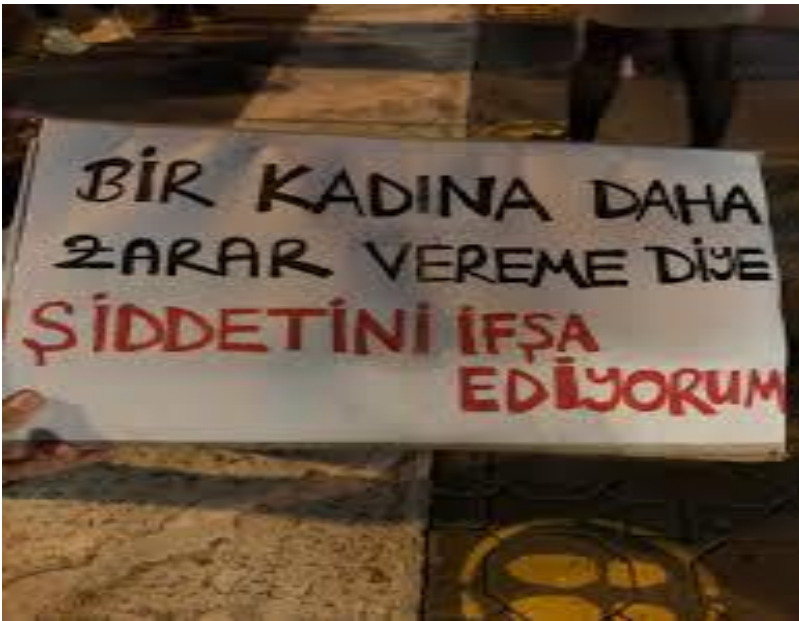 BİR KADINA DAHA
ZARAR VEREME DİYE
ŞİDDETİNİ İFŞA
EDİYORUM